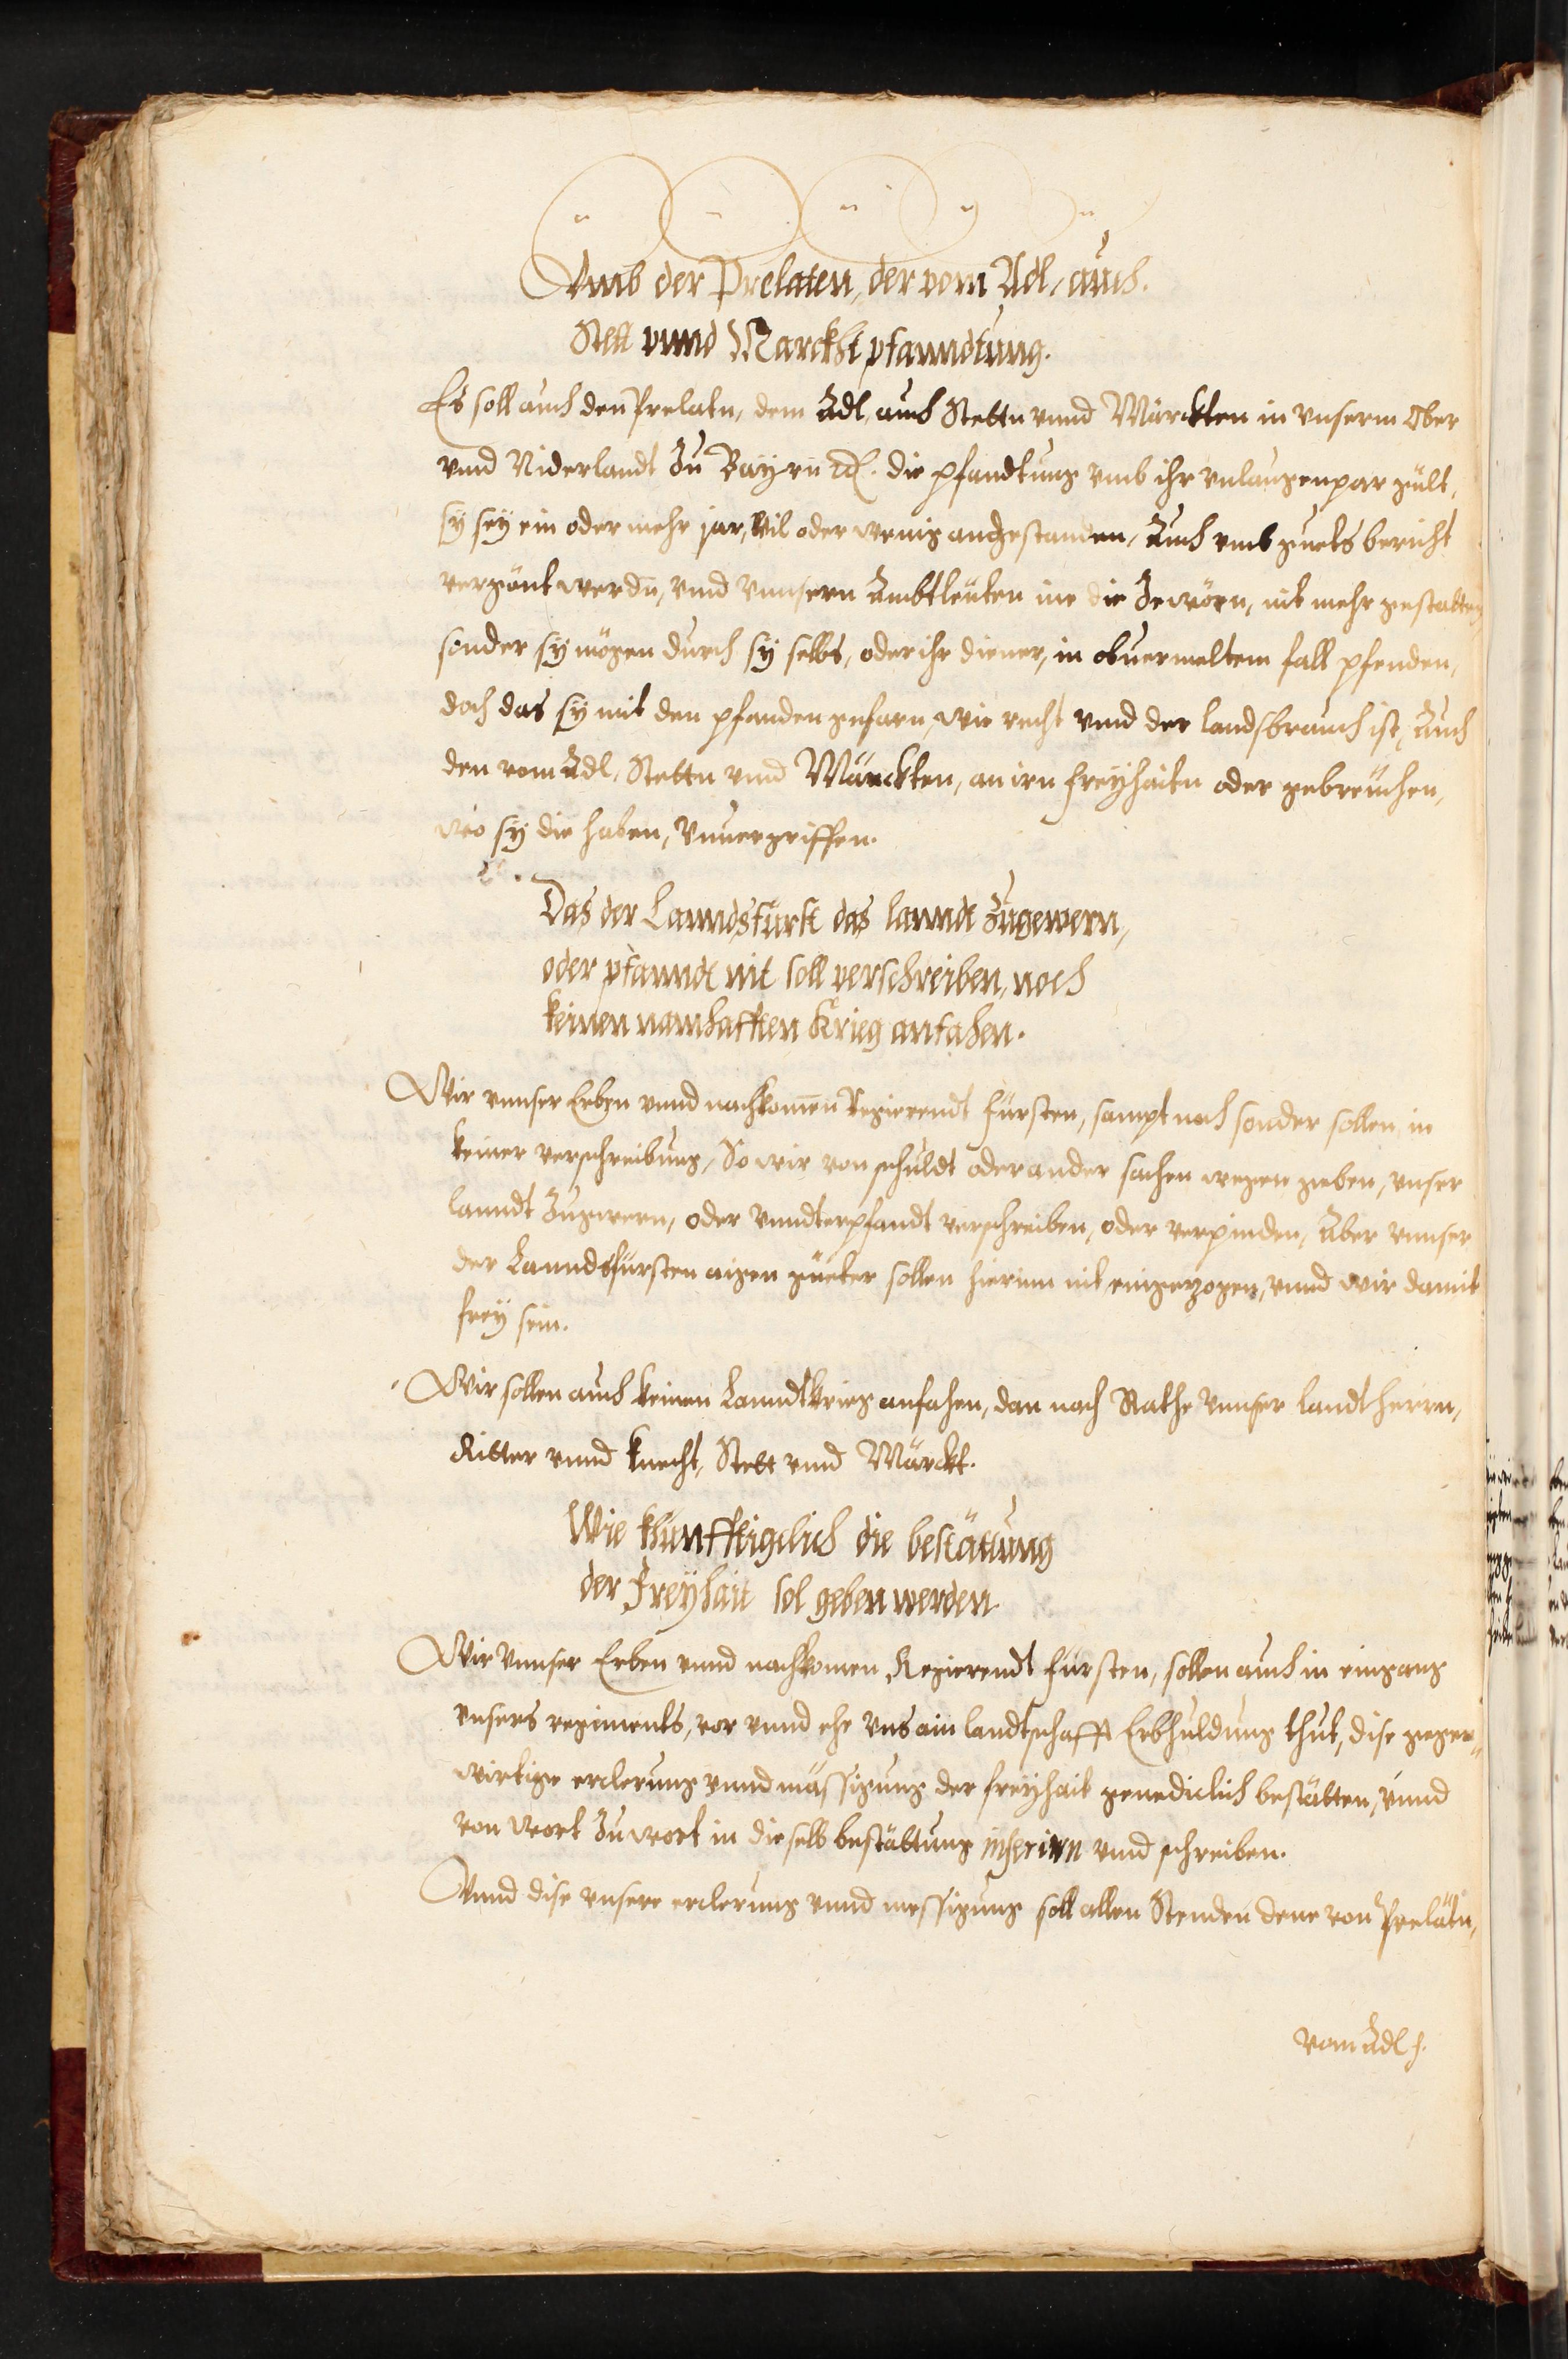 Vmb der Prelaten, der vom Adl, auch
Stett vnnd Marckht pfanndtung.
Es soll auch den Prelatn, dem Adl, auch Stettn vnnd Märckten in vnserm Ober
vnnd Niderlandt Zu Bayrn &c. die pfandtung vmb ihr vnlaugenpar gült,
sy sey ein oder mehr jar, vil oder wenig angestanden, Auch vmb guets bericht
vergönt werdn, vnd Vnnsern Ambtleuten ine die Zewörn, nit mehr gestatten,
sonder sy mögen durch sy selbs, oder ihr diener, in obuermeltem fall pfenden,
doch das sy mit den pfanden gefarn, wie recht vnnd der landsbrauch ist, Auch
den vom Adl, Stettn vnd Märckten, an irn freyhaitn oder gebreuchen,
wo sy die haben, Vnuergriffen.
Das der Lanndsfürst das lanndt Zugewern,
oder pfanndt nit soll verschreiben, noch
keinen namhafften Krieg anfahen.
Wir vnnser Erben vnnd nachkomen Regierendt fürsten, sampt noch sonder sollen in
keiner verschreibung, So wir von schuldt oder ander sachen wegen geben, vnser
lanndt Zugwern, oder Vnndterpfandt verschreiben, oder verpinden, Aber vnnser
der Lanndsfürsten aigen güeter sollen hierinn nit eingezogen, vnnd wir damit
frey sein.
Wir sollen auch keinen Lanndtkrieg anfahen, dan nach Rathe Vnnser landtherrn,
Ritter vnnd knecht, Stett vnd Märckt.
Wie khünfftigclich die bestättung
der Freyhait sol geben werden
Wir Vnnser Erben vnnd nachkomen Regierendt fürsten, sollen auch in eingang
vnsers regiments, vor vnnd ehe Vns ain landtschafft Erbhuldung thut, dise gegen„
wirtige erclerung vnnd mässigung der freyhait genediclich bestätten, vnnd
von wort Zu wort in dieselb bestättung inserirn vnnd schreiben.
Vnnd dise vnsere erclerung vnnd messigung soll allen Stenden dene von Prelätn,
vom Adl